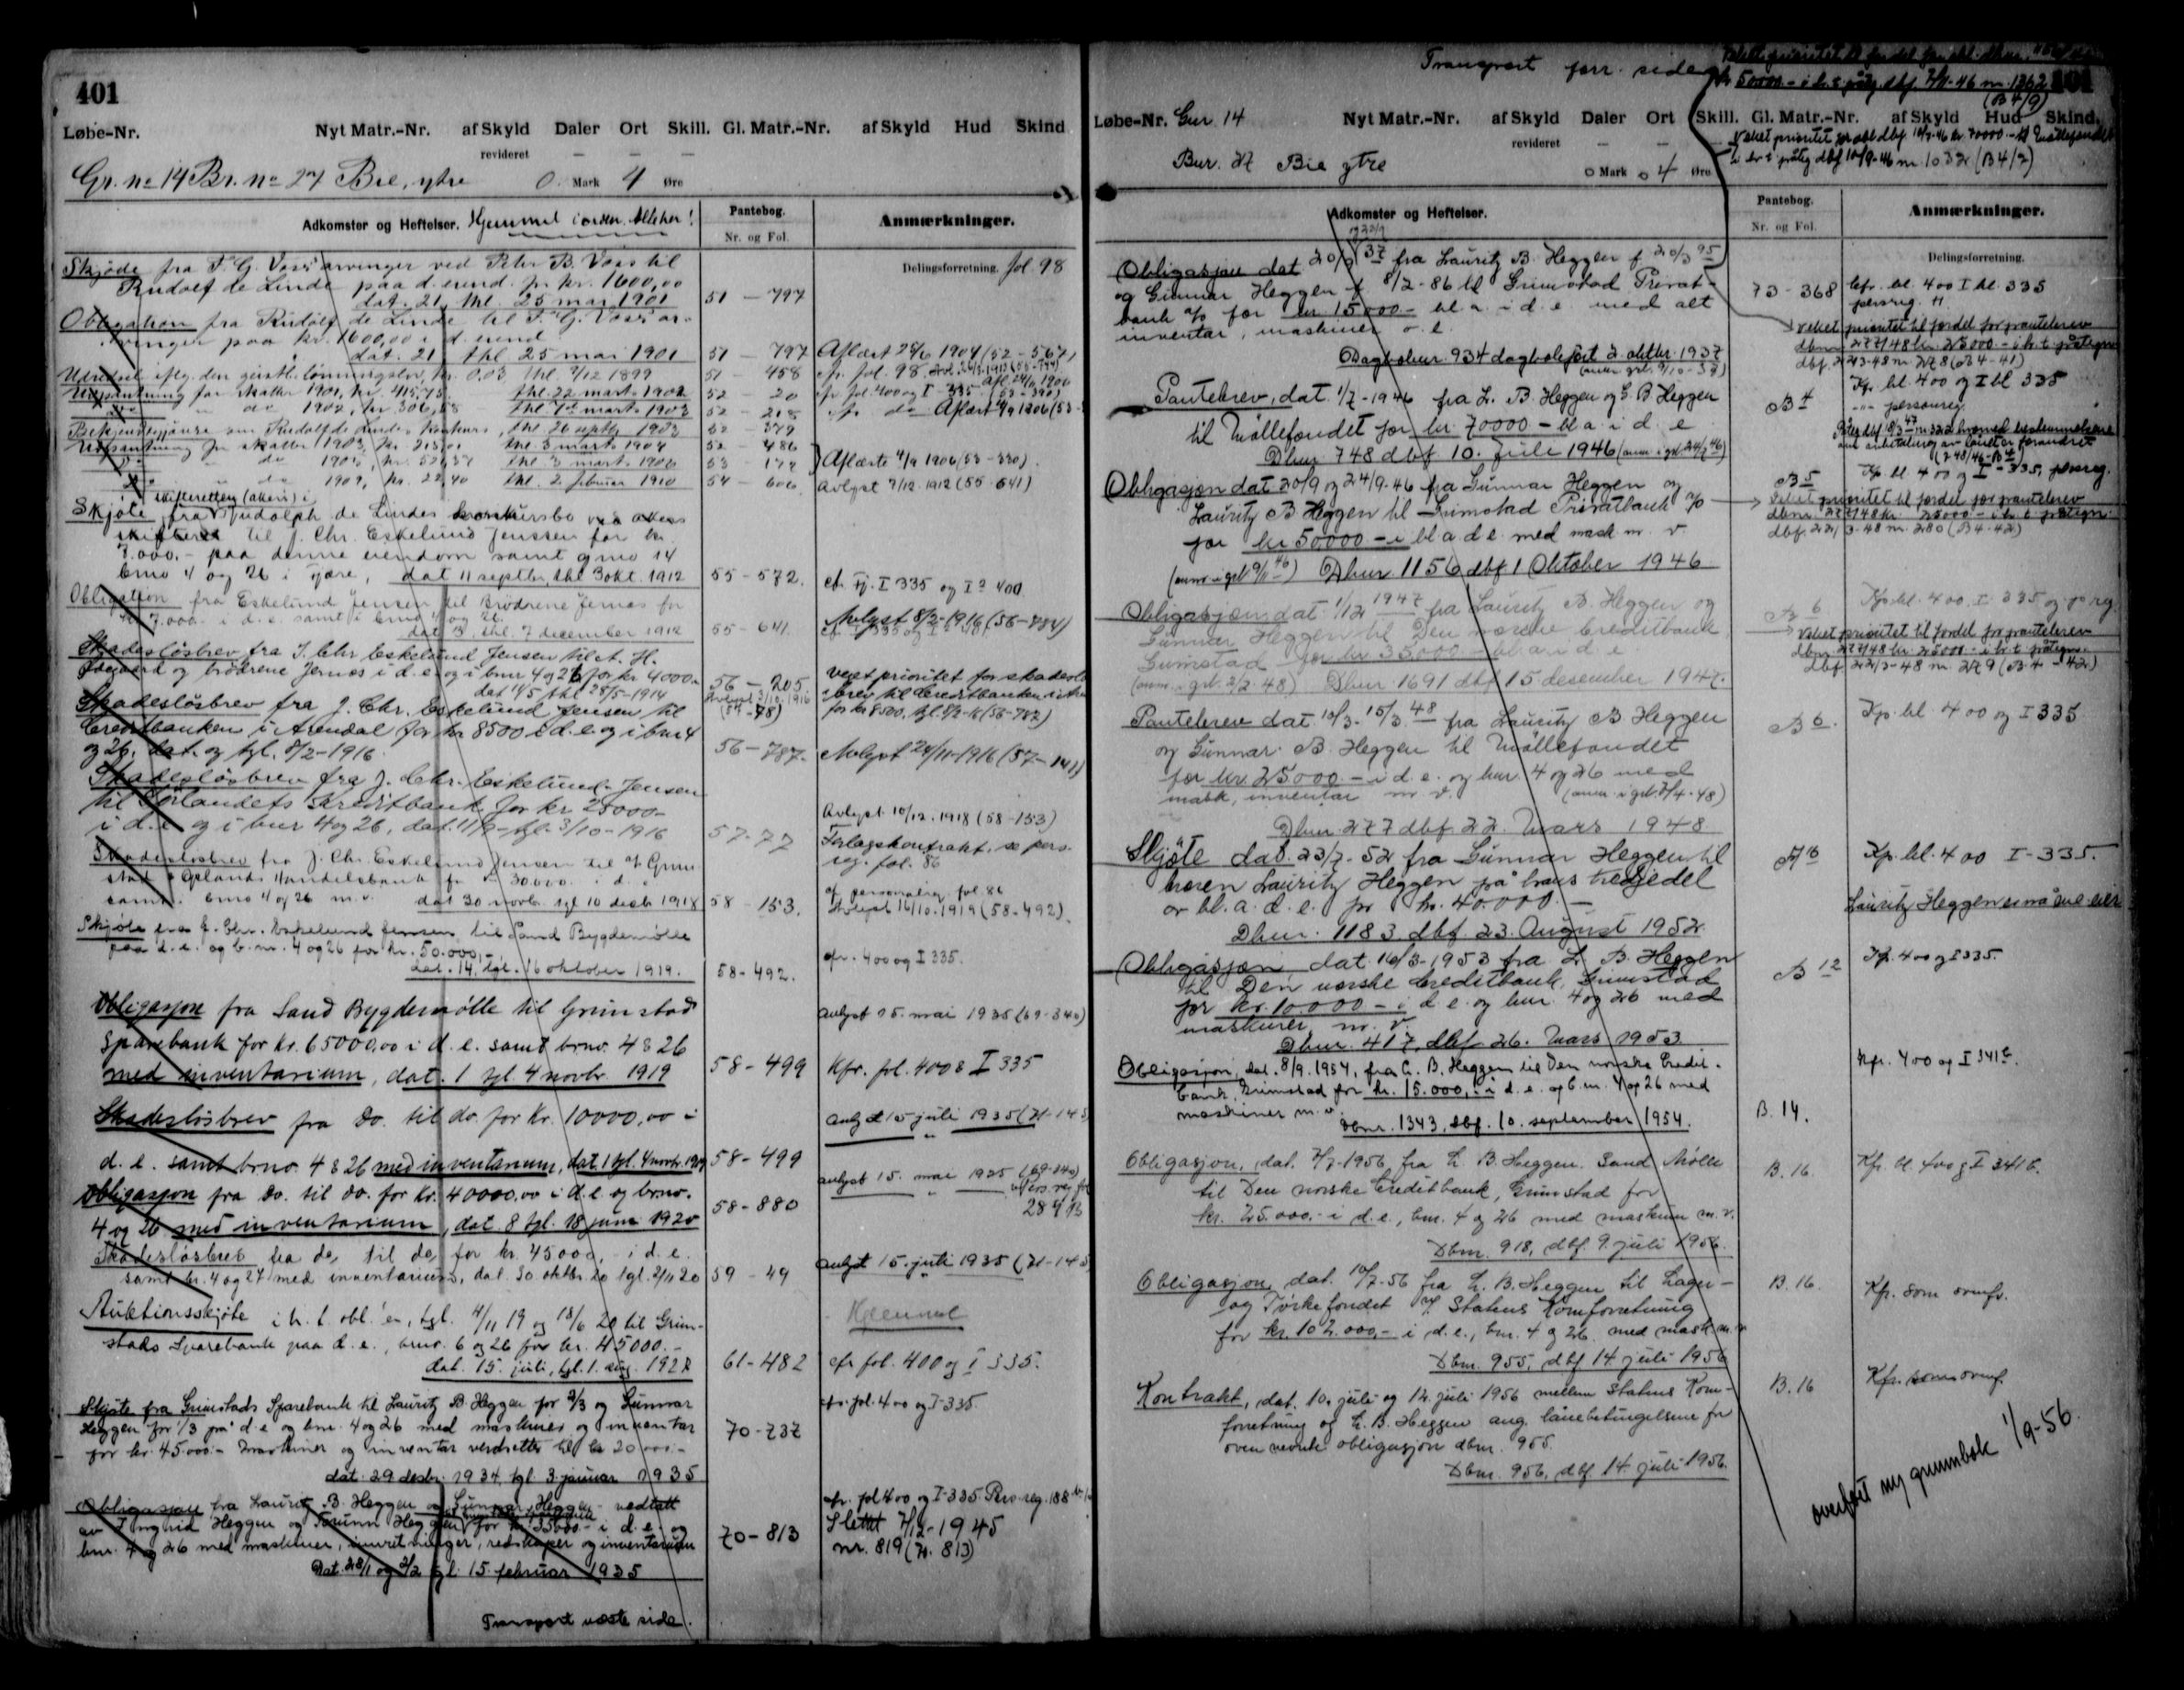 401
Løbe-Nr. Nyt Matr.-Nr. af Skyld Daler Ort Skill. Gl. Matr.-Nr. af Skyld Hud Skind
revideret — — —
Gr. no 14 Br. no 27 Bie, ytre 0 Mark 4 Øre
Adkomster og Heftelser. Hjemmel i orden. Pantebog. Nr. og Fol. Anmærkninger.
Delingsforretning. fol 98
Skjøde fra T. G. Voss' arvinger ved Peter B. Voss til
Rudolf de Linde paa d. eiend. for kr. 1600,00
dat. 21, thl. 25 mai 1901 51 — 797
Obligation fra Rudolf de Linde til T. G. Voss' ar-
vinger paa kr. 1600,00 i d. eiend.
dat. 21 thl. 25 mai 1901 51 — 797 Aflæst 24/6 1904 (52 – 567)
Udredsel iflg. den geistl. lønningslov, kr. 0,03 thl. 9/12 1899 51 — 458 cfr. fol. 98
Udpantning for skatter 1901, kr. 415,75 thl. 22 marts 1902 52 — 20 cfr. fol. 400 og I – 335
do 1902, kr. 306,68 thl. 7de marts 1903 52 — 218 cfr. do Aflæst 4/9 1906
Bekjendtgjørelse om Rudolf de Lindes konkurs, thl. 26 septbr 1903 52 – 379
Udpantning for skatter 1903, kr. thl. 3 marts 1904 52 – 486
do 1905, kr. thl. 3 marts 1906 53 – 172 Aflæste 4/9 1906 (53 – 330)
do 1909, kr. 22,40 thl. 2 februar 1910 54 – 606 Avlyst 7/12. 1912 (55 – 641)
skifteretten (Akers) i
Skjøte fra Rudolph de Lindes konkursbo ved Akers
skifteret til J. Chr. Eskelund Jenssen for kr.
7.000.- paa denne eiendom samt gno 14
bno 4 og 26 i Fjære, dat 11 septbr, thl. 3 okt. 1912 55 – 572. cfr. Fj. I 335 og I a 400
Obligation fra Eskelund Jensen til Brødrene Jernæs for
kr. 7.000.- i d. e. samt i bno 4 og 26.
dat 3, thl. 7 december 1912 55 – 641. Avlyst 8/2 – 1916 (56 – 784)
Skadesløsbrev fra J. Chr. Eskelund Jensen til A. H.
Ødegaard og brødrene Jernæs i d. e. og i bnr 4 og 26 for kr 4000.-
dat 11/5 thl. 28/5 – 1914 56 – 205 veket prioritet for skadesløs-
brev til Creditbanken i Arendal
for kr 8500, tgl. 8/2-16 (56 – 787)
Skadesløsbrev fra J. Chr. Eskelund Jensen til
Creditbanken i Arendal for kr 8500 i d. e. og i bnr 4
og 26, dat. og tgl. 8/2 – 1916. 56 – 787. Avlyst 24/11 – 1916 (57 – 141)
Skadesløsbrev fra J. Chr. Eskelund Jensen
til Sørlandets Kreditbank for kr 25000.-
i d. e. og i bnr 4 og 26, dat. 11/9 – tgl. 3/10 – 1916 57 – 77 Avlyst 10/12. 1918 (58 – 153)
Forlagskontrakt, se pers.
reg. fol. 86
Skadesløsbrev fra J. Chr. Eskelund Jensen til A/S Grim-
stad & Oplands Handelsbank for kr 30.000. i d. e.
samt bno 4 og 26 m. v. dat 30 novbr tgl 10 desbr 1918 58 – 153. cf personalreg. fol. 86
Avlyst 16/10. 1919 (58 – 492).
Skjøte fra J. Chr. Eskelund Jensen til Sand Bygdemølle
paa d. e. og b. nr. 4 og 26 for kr. 50.000,-
dat. 14, tgl. 16 oktober 1919. 58 – 492. cfr. 400 og I 335.
Obligasjon fra Sand Bygdemølle til Grimstad
Sparebank for kr. 65000,00 i d. e. samt brno. 4 & 26
med inventarium, dat. 1 tgl. 4 novbr. 1919 58 – 499 avlyst 15. mai 1935 (69 – 340)
Kfr. fol. 400 & I 335
Skadesløsbrev fra do. til do. for kr. 10000,00 i
d. e. samt brno. 4 & 26 med inventarium, dat. 1 tgl. 4 novbr. 1919 58 – 499 avlyst 15 juli 1935 (71 – 145
Obligasjon fra do. til do. for kr. 40000,00 i d. e. og brno.
4 og 26 med inventarium, dat. 8 tgl. 18 juni 1920 58 – 880 avlyst 15. mai 1935 (69 – 340)
Skadesløsbrev fra do, til do, for kr. 45000,- i d. e.
samt br. 4 og 27 med inventarium, dat. 30 oktbr. 20 tgl. 2/11 20 59 – 49 avlyst 15. juli 1935 (71 – 145
Auktionsskjøte i h. t. obl.'er, tgl. 4/11 19 og 18/6 20 til Grim-
stads Sparebank paa d. e., brno. 6 og 26 for kr. 45000.-
dat. 15. juli, tgl. 1. aug. 192 61 – 482 Hjemmel
cfr fol. 400 og I 335.
Skjøte fra Grimstads Sparebank til Lauritz B Heggen for 2/3 og Gunnar
Heggen for 1/3 på d. e. og bnr. 4 og 26 med maskiner og inventar
for kr. 45.000.- Maskiner og inventar verdsettes til kr 20 000.-
dat. 29 desbr. 1934, tgl. 3. januar 1935 70 – 737 cfr. fol. 400 og I – 335.
Obligasjon fra Lauritz B. Heggen og Gunnar Heggen – vedtatt
av Ingrid Heggen og Torunn Heggen for kr 35000.- i d. e. og
bnr. 4 og 26 med maskiner, innretninger, redskaper og inventarium
Dat. 28/1 og 2/2 tgl. 15. februar 1935 70 – 813 cfr. fol 400 og I – 335 Pers. reg. 188
Slettet 7/12 – 1945
nr. 819 (70. 813)
Transport næste side.
Transport forr. side
kr 50000 – i h. t. påtg. dbf. 7/11 – 46 nr. 1362
(B 4/9)
401
Løbe-Nr. Gnr. 14 Nyt Matr.-Nr. af Skyld Daler Ort Skill. Gl. Matr.-Nr. af Skyld Hud Skind.
revideret — — —
Bnr. 27 Bie ytre 0 Mark 04 Øre
i h. t. påtg dbf 10/9-46 nr. 1032 (B 4/2)
Adkomster og Heftelser. Pantebog. Nr. og Fol. Anmærkninger.
Delingsforretning.
Obligasjon dat 20/9 37 fra Lauritz B. Heggen f 20/3 95
og Gunnar Heggen f. 8/2 – 86 til Grimstad Privat-
bank A/S for kr 15000 – bl. a. i d. e. med alt
inventar, maskiner o. l.
Dagboknr. 934 dagbokført 2. oktbr. 1937 73 – 368 Cfr. bl. 400 I bl. 335
persreg. H
veket prioritet til fordel for pantebrev
dbnr 277/48 kr. 25000 – i h. t. påtegn.
dbf. 22/3-48 nr. 278 (B 4 – 41)
Pantebrev, dat 1/7 – 1946 fra L. B. Heggen og G. B Heggen
til Møllefondet for kr 70000 – bl a. i d. e.
Dbnr 748 dbf 10. juli 1946 B 4 Kfr. bl. 400 og I bl 335
personreg.
Obligasjon dat 20/9 og 24/9-46 fra Gunnar Heggen og
Lauritz B Heggen til Grimstad Privatbank A/S
for kr 50000 – i bl a d e. med mask m. v.
Dbnr. 1156 dbf 1 Oktober 1946 B 5 Kfr. bl. 400 og I – 335, persreg.
Veket prioritet til fordel for pantebrev
dbnr. 277/48 kr 25000 – i h. t. påtegn.
dbf. 22/3-48 nr. 280 (B 4 – 42)
Obligasjon dat. 1/12 1947 fra Lauritz B. Heggen og
Gunnar Heggen til Den norske Creditbank
Grimstad for kr 35000 – bl. a. i d. e.
(anm. i grb. 2/2-48) Dbnr. 1691 dbf 15 desember 1947. B 6 Kfr. bl. 400, I 335 og p. reg.
veket prioritet til fordel for pantebrev
dbnr 277/48 kr 25000 – i h. t. påtegn.
dbf 22/3-48 nr. 279 (B 4 – 42)
Pantebrev dat. 13/3 – 15/3 48 fra Lauritz B Heggen
og Gunnar B. Heggen til Møllefondet
for kr. 25000 – i d. e. og bnr. 4 og 26 med
mask, inventar m. v. (anm. i grb. 7/4-48)
Dbnr. 277 dbf. 22. Mars 1948 B 6. Kfr. bl. 400 og I 335
Skjøte dat. 23/7 – 52 fra Gunnar Heggen til
broren Lauritz Heggen på hans tredjedel
av bl. a. d. e. for kr. 40.000.-
Dbnr. 1183 dbf. 23. August 1952 Kfr. bl. 400 I – 335.
Lauritz Heggen er nå ene eier
Obligasjon, dat 16/3 – 1953 fra L. B. Heggen
til Den norske Creditbank, Grimstad
for kr. 10.000 – i d. e. og bnr. 4 og 26 med
maskiner m. v.
Dbnr. 417, dbf. 26. Mars 1953. B 12 Kfr. 400 og I 335.
Obligasjon, dat. 8/9. 1954, fra L. B. Heggen til Den norske Credit-
bank, Grimstad for kr. 15.000,- i d. e. og b. nr. 4 og 26 med
maskiner m. v.
Dbnr. 1343, dbf. 10. september 1954. B. 14. Kfr. 400 og I 341 b.
Obligasjon, dat. 7/7-1956 fra L. B. Heggen. Sand Mølle
til Den norske Creditbank, Grimstad for
kr. 25.000.- i d. e., bnr. 4 og 26 med maskiner m. v.
Dbnr. 918, dbf. 9. juli 1956. B. 16 Kfr. bl. 400 og I 341 b.
Obligasjon, dat. 10/7-56 fra L. B. Heggen til Lager-
og Tørkefondet v/ Statens Kornforretning
for kr. 102.000,- i d. e., bnr. 4 og 26 med mask. m. v.
Dbnr. 955, dbf 14. juli 1956 B. 16 Kfr. som ovenfor.
Kontrakt, dat. 10. juli og 12. juli 1956 mellem Statens Korn-
forretning og L. B. Heggen ang. lånebetingelsene for
oven nevnte obligasjon dbnr. 955.
Dbnr. 956, dbf 14. juli 1956. B. 16 Kfr. som ovenf.
overført ny grunnbok 1/9-56.